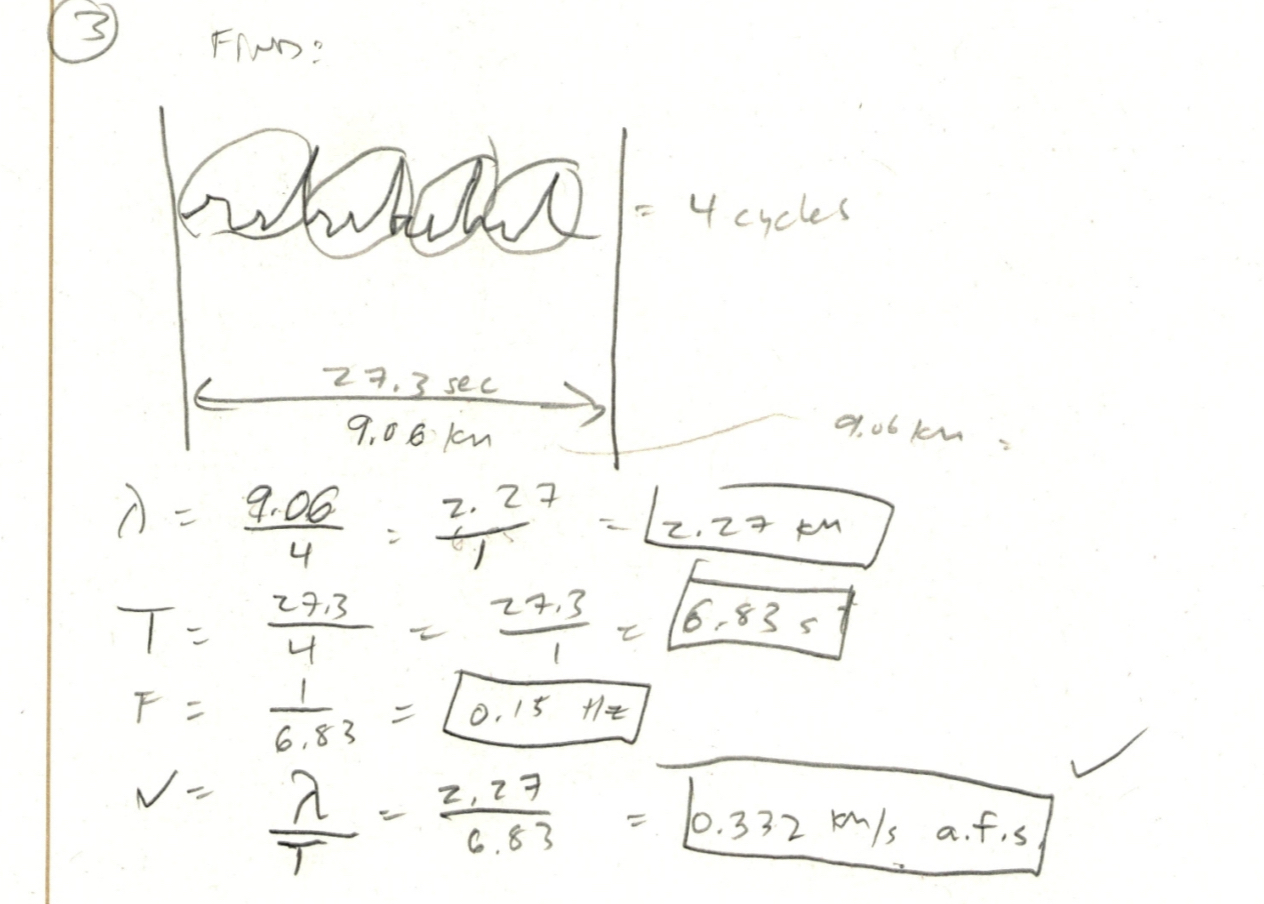 3
FIND:
= 4 cycles
27.3 sec
9.06 km
9.06 km =
λ = 9.06/4 = 2.27/1 = 2.27 km
T = 27.3/4 = 27.3/1 = 6.83 s
F = 1/6.83 = 0.15 Hz
V = λ/T = 2.27/6.83 = 0.332 km/s a.f.s.